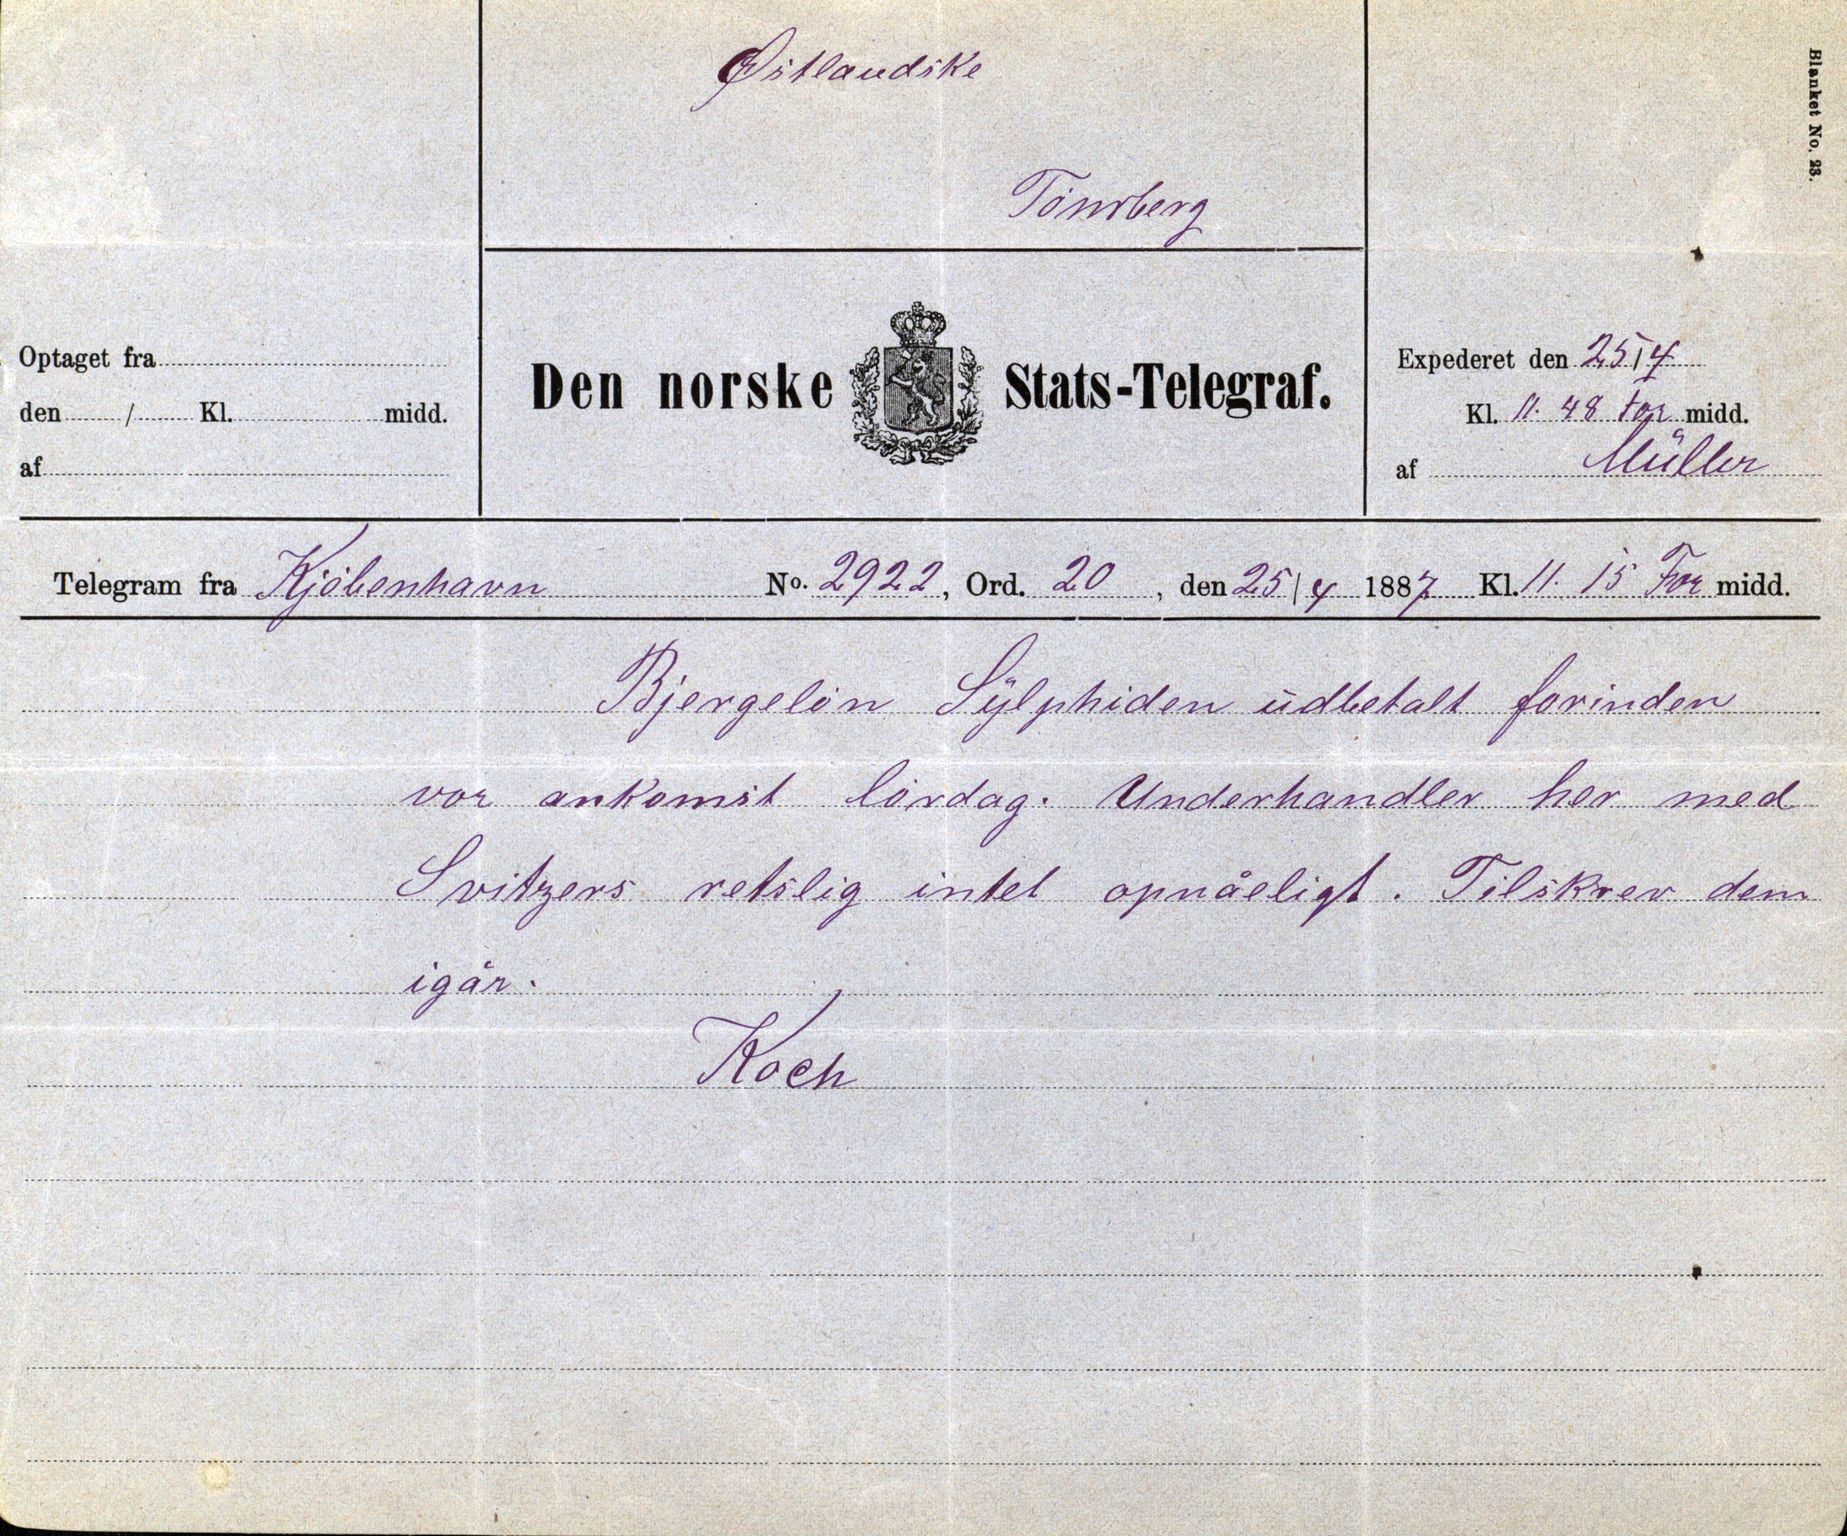 Østlandske
Tönsberg
Blanket No. 23.
Optaget fra
den / Kl. midd.
af
Den norske Stats-Telegraf.
Expederet den 25/4
Kl. 11.48 For midd.
af Müller
Telegram fra Kjöbenhavn No. 2922, Ord. 20, den 25/4 1887 Kl. 11.15 For midd.
Bjergelön Sylphiden udbetalt forinden
vor ankomst lördag. Underhandler her med
Svitzers retslig intet opnåeligt. Tilskrev dem
igår.
Koch